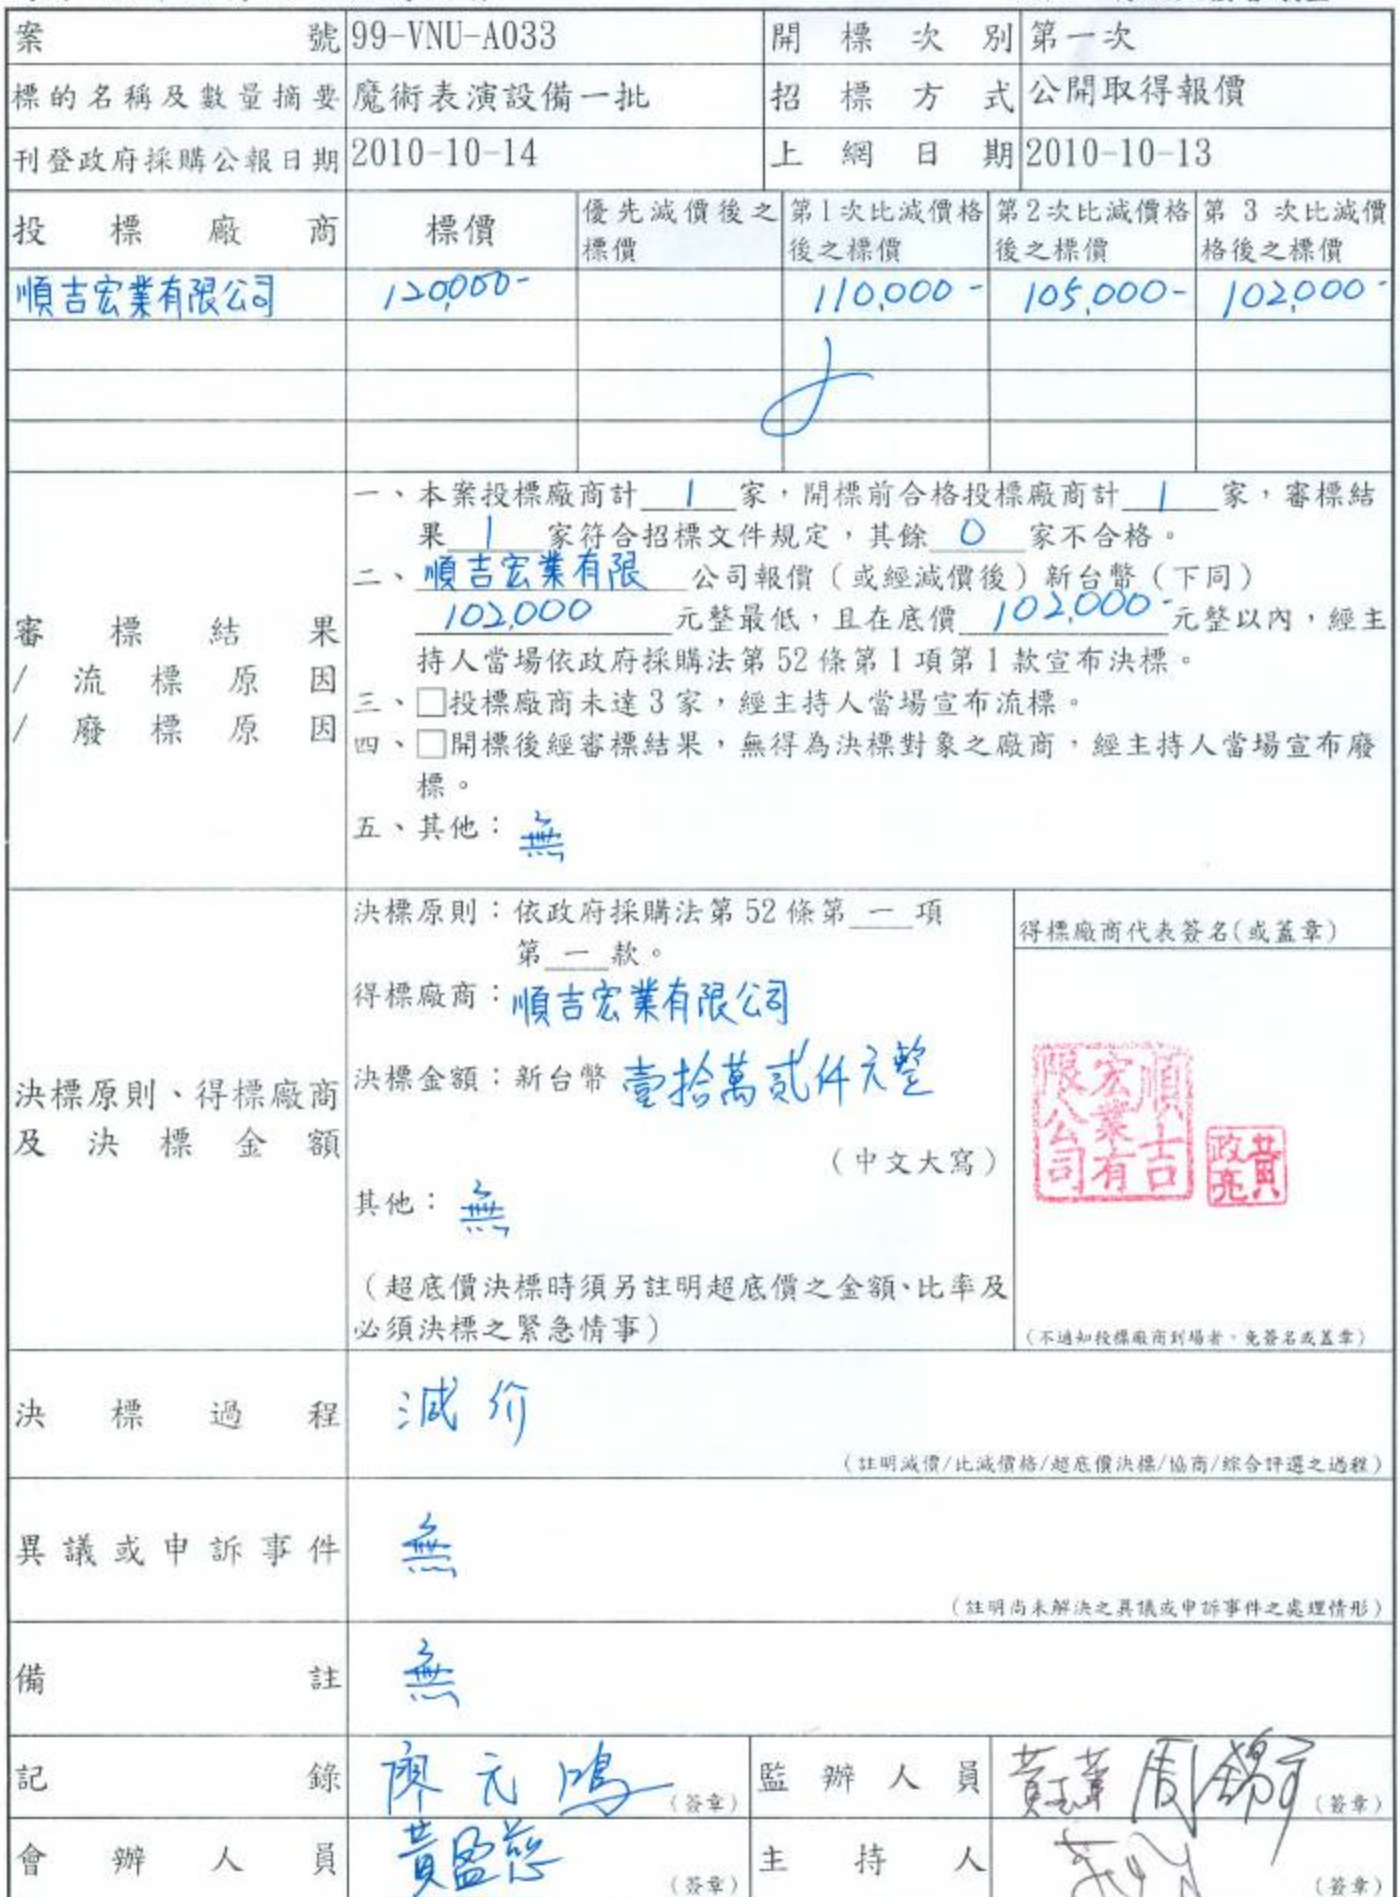 案號 99-VNU-A033 開標次別 第一次
標的名稱及數量摘要 魔術表演設備一批 招標方式 公開取得報價
刊登政府採購公報日期 2010-10-14 上網日期 2010-10-13
投標廠商 標價 優先減價後之標價 第1次比減價格後之標價 第2次比減價格後之標價 第 3 次比減價格後之標價
順吉宏業有限公司 120,000- 110,000- 105,000- 102,000-
審標結果
/流標原因
/廢標原因
一、本案投標廠商計 1 家,開標前合格投標廠商計 1 家,審標結
果 1 家符合招標文件規定,其餘 0 家不合格。
二、順吉宏業有限 公司報價(或經減價後)新台幣(下同)
102,000 元整最低,且在底價 102,000- 元整以內,經主
持人當場依政府採購法第 52 條第 1 項第 1 款宣布決標。
三、□投標廠商未達 3 家,經主持人當場宣布流標。
四、□開標後經審標結果,無得為決標對象之廠商,經主持人當場宣布廢
標。
五、其他:無
決標原則、得標廠商
及決標金額
決標原則:依政府採購法第 52 條第 一 項
第 一 款。
得標廠商:順吉宏業有限公司
決標金額:新台幣 壹拾萬貳仟元整
(中文大寫)
其他:無
(超底價決標時須另註明超底價之金額、比率及
必須決標之緊急情事)
得標廠商代表簽名(或蓋章)
順吉宏業有限公司
黃政亮
(不通知投標廠商到場者,免簽名或蓋章)
決標過程 減价
(註明減價/比減價格/超底價決標/協商/綜合評選之過程)
異議或申訴事件 無
(註明尚未解決之異議或申訴事件之處理情形)
備註 無
記錄 廖元鴻 (簽章) 監辦人員 (簽章)
會辦人員 黃盈慈 (簽章) 主持人 (簽章)